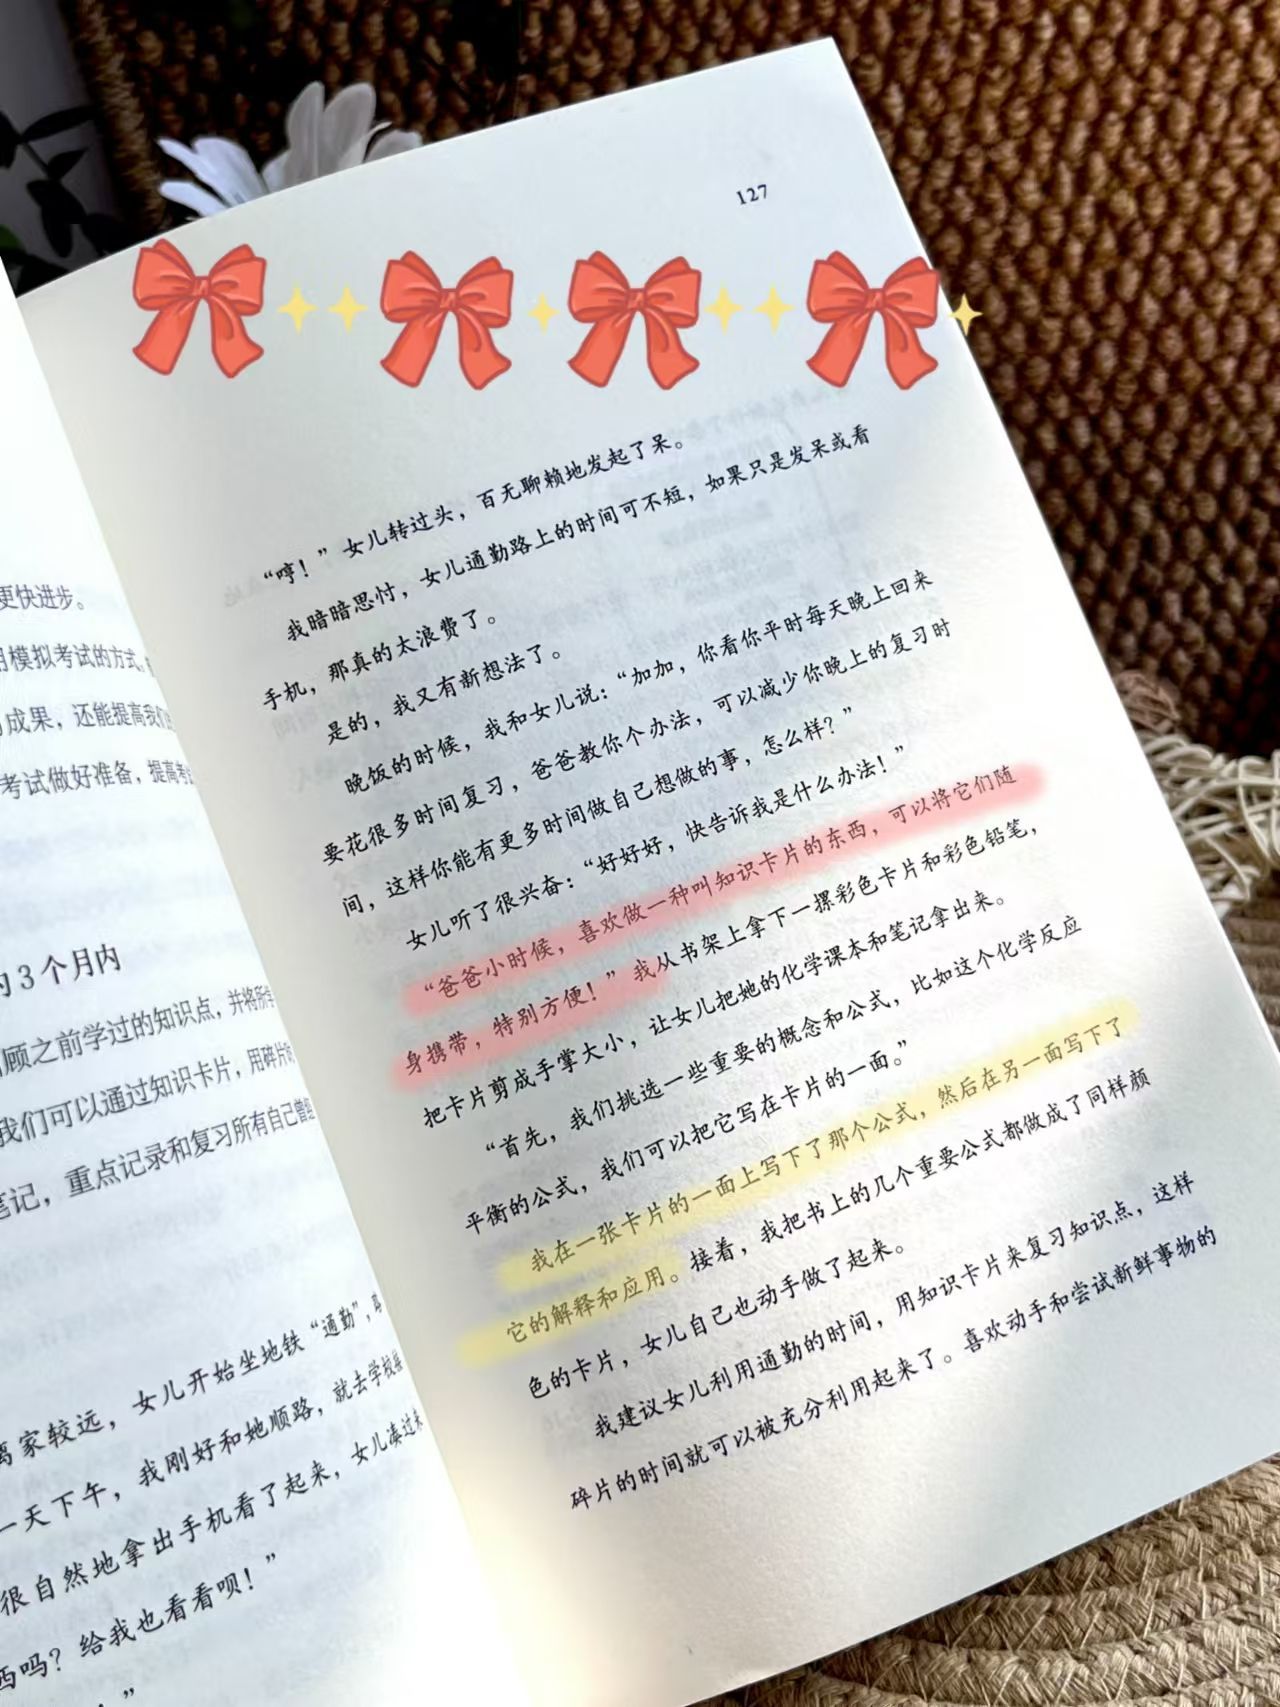 更快进步。
模拟考试的方式,
成果，还能提高我们
考试做好准备，提高考
3个月内
顾之前学过的知识点，并将所学
我们可以通过知识卡片，用碎片
笔记，重点记录和复习所有自己曾经
离家较远，女儿开始坐地铁“通勤”,
一天下午，我刚好和她顺路，就去学校接
很自然地拿出手机看了起来，女儿凑过来
西吗？给我也看看呗！”
127
“哼！”女儿转过头，百无聊赖地发起了呆。
我暗暗思忖，女儿通勤路上的时间可不短，如果只是发呆或看
手机，那真的太浪费了。
是的，我又有新想法了。
晚饭的时候，我和女儿说：“加加，你看你平时每天晚上回来
要花很多时间复习，爸爸教你个办法，可以减少你晚上的复习时
间，这样你能有更多时间做自己想做的事，怎么样？”
女儿听了很兴奋：“好好好，快告诉我是什么办法！”
“爸爸小时候，喜欢做一种叫知识卡片的东西，可以将它们随
身携带，特别方便！”我从书架上拿下一摞彩色卡片和彩色铅笔，
把卡片剪成手掌大小，让女儿把她的化学课本和笔记拿出来。
“首先，我们挑选一些重要的概念和公式，比如这个化学反应
平衡的公式，我们可以把它写在卡片的一面。”
我在一张卡片的一面上写下了那个公式，然后在另一面写下了
它的解释和应用。接着，我把书上的几个重要公式都做成了同样颜
色的卡片，女儿自己也动手做了起来。
我建议女儿利用通勤的时间，用知识卡片来复习知识点，这样
碎片的时间就可以被充分利用起来了。喜欢动手和尝试新鲜事物的